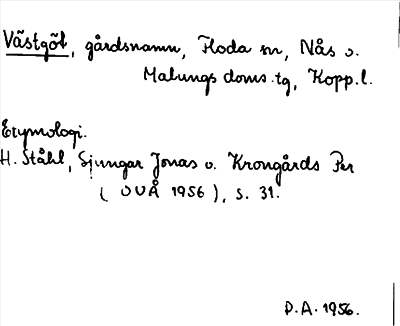 Västgöt, gårdsnamn, Floda sn, Nås o.
Malungs doms.tg, Kopp.l.
Etymologi.
H. Ståhl, Sjungar Jonas o. Krongårds Per
( OUÅ 1956 ), s. 31.
D.A. 1956.